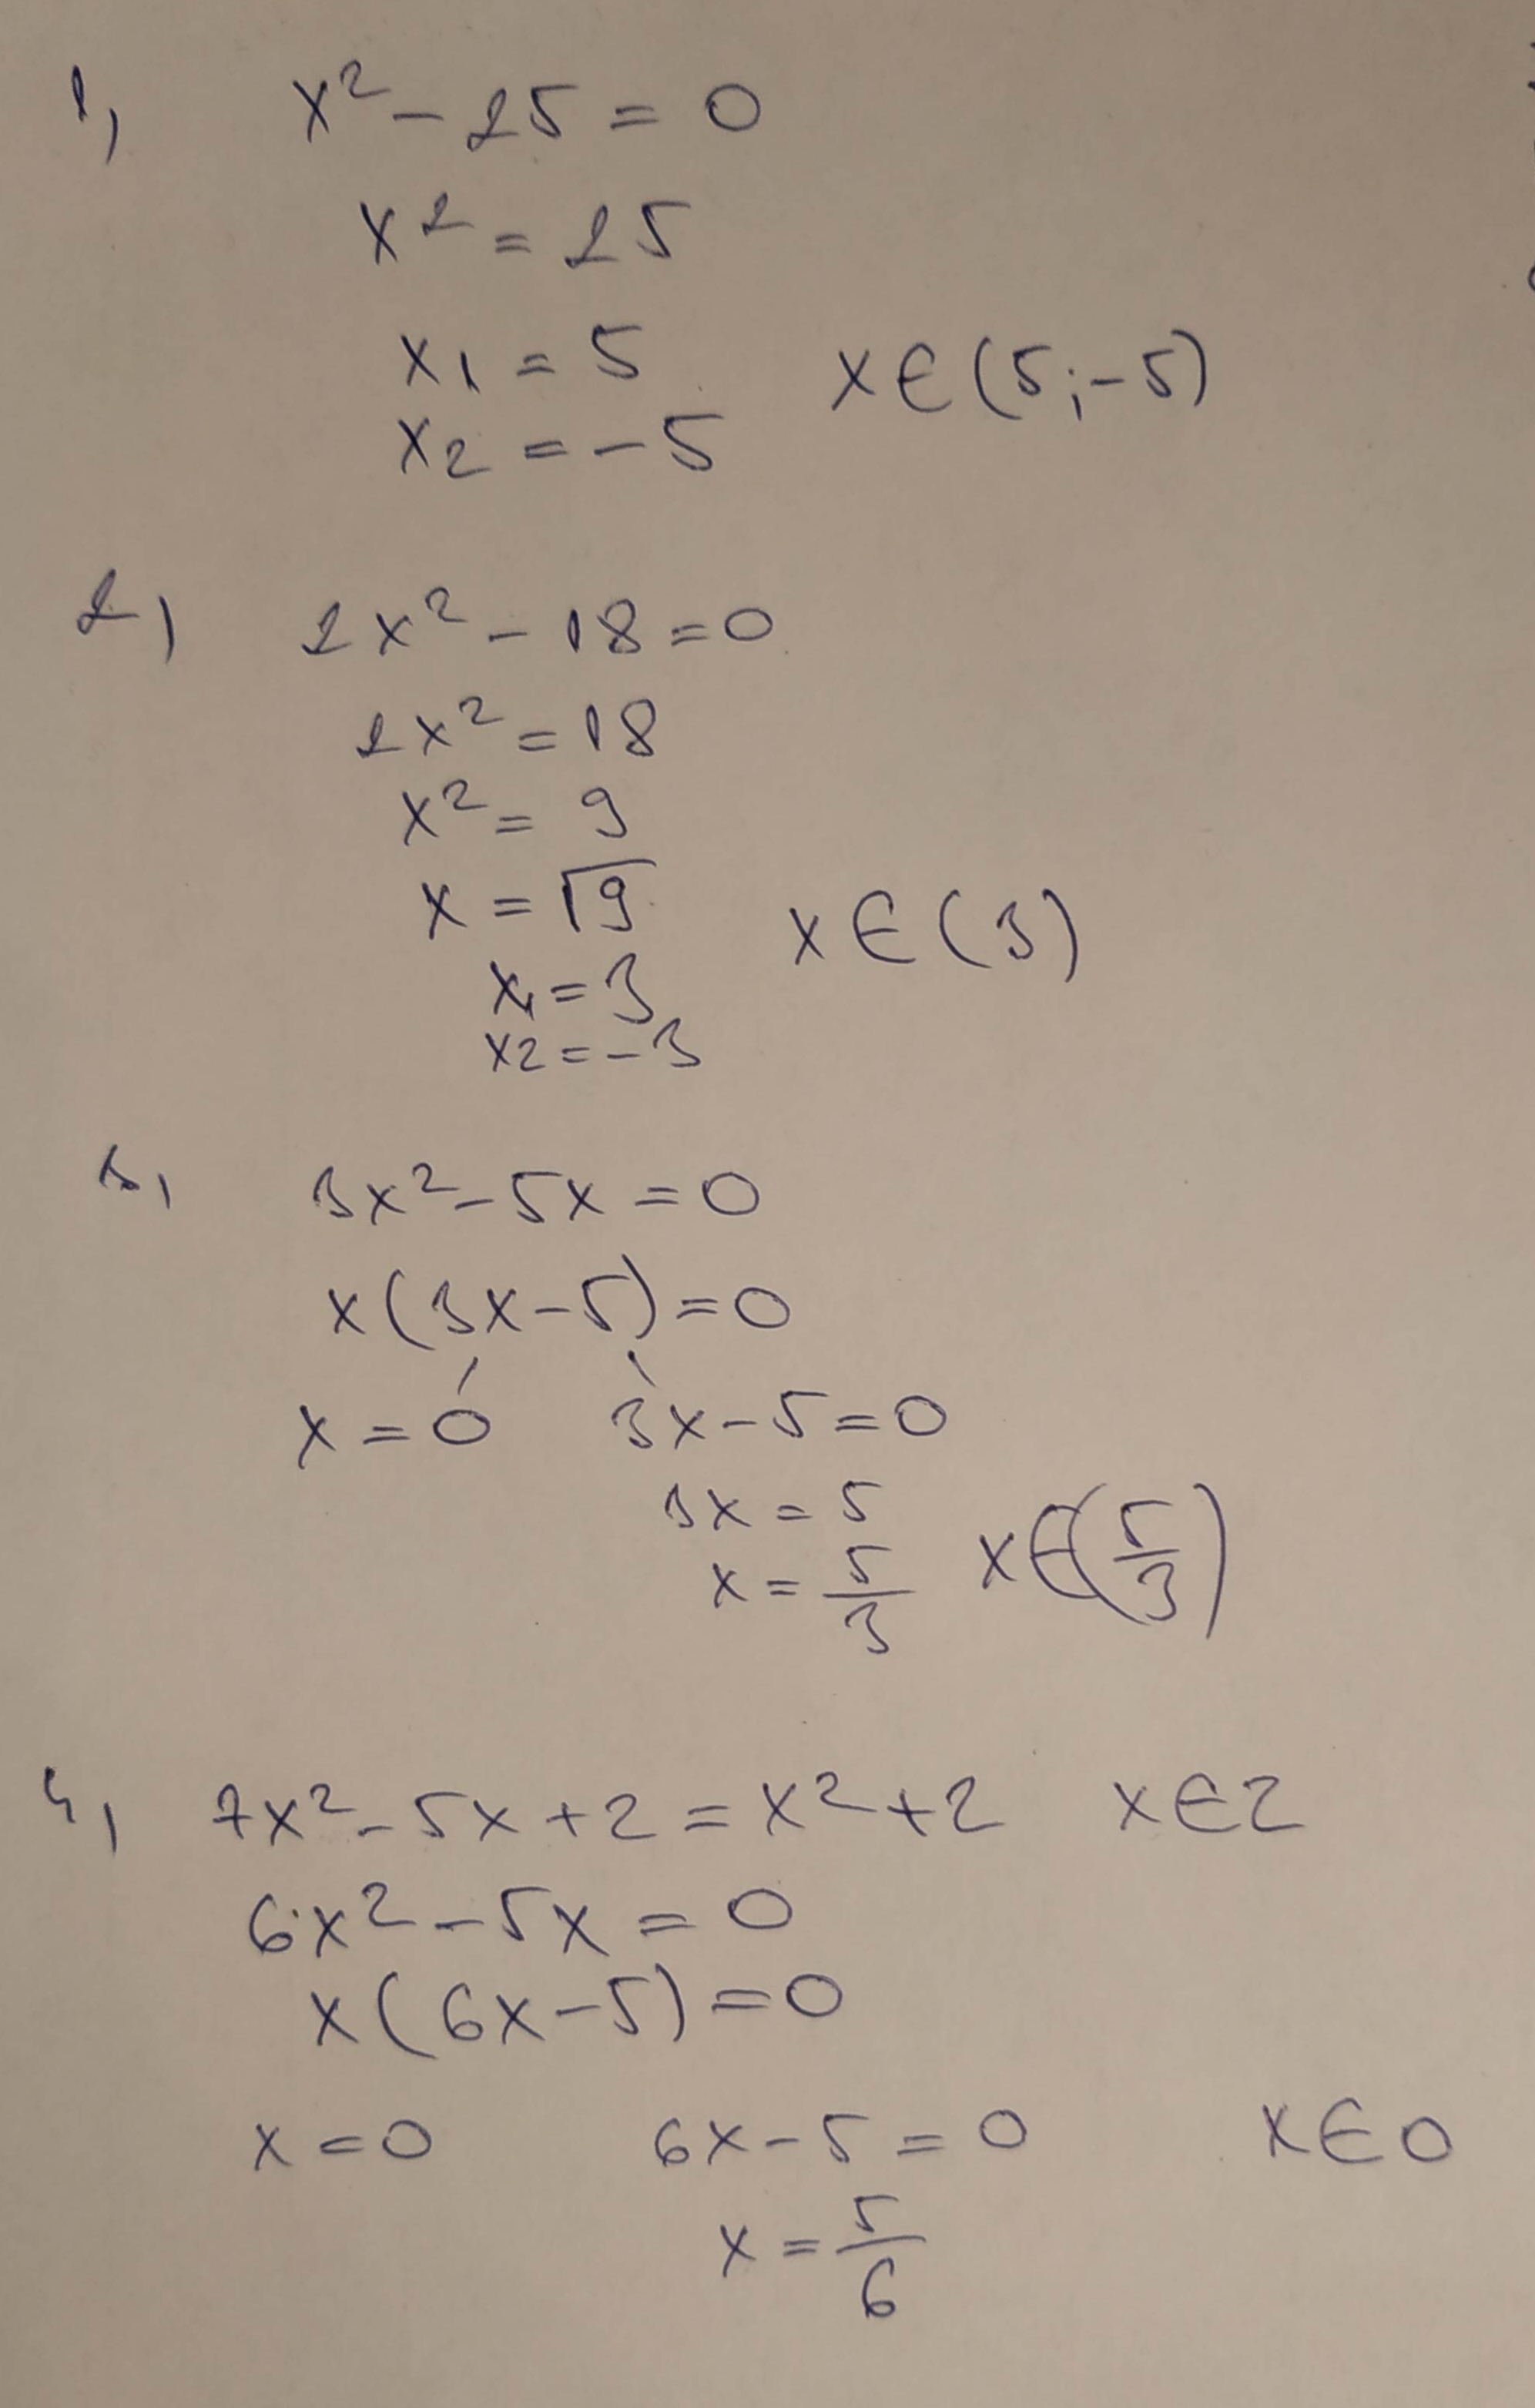 1, x² - 25 = 0
x² = 25
x1 = 5 x ∈ (5;-5)
x2 = -5
2) 2x² - 18 = 0
2x² = 18
x² = 9
x = √9 x ∈ (3)
x1 = 3
x2 = -3
3, 3x² - 5x = 0
x(3x-5) = 0
x = 0 3x - 5 = 0
3x = 5
x = 5/3 x ∈ (5/3)
4, 7x² - 5x + 2 = x² + 2 x ∈ Z
6x² - 5x = 0
x(6x-5) = 0
x = 0 6x - 5 = 0 x ∈ 0
x = 5/6